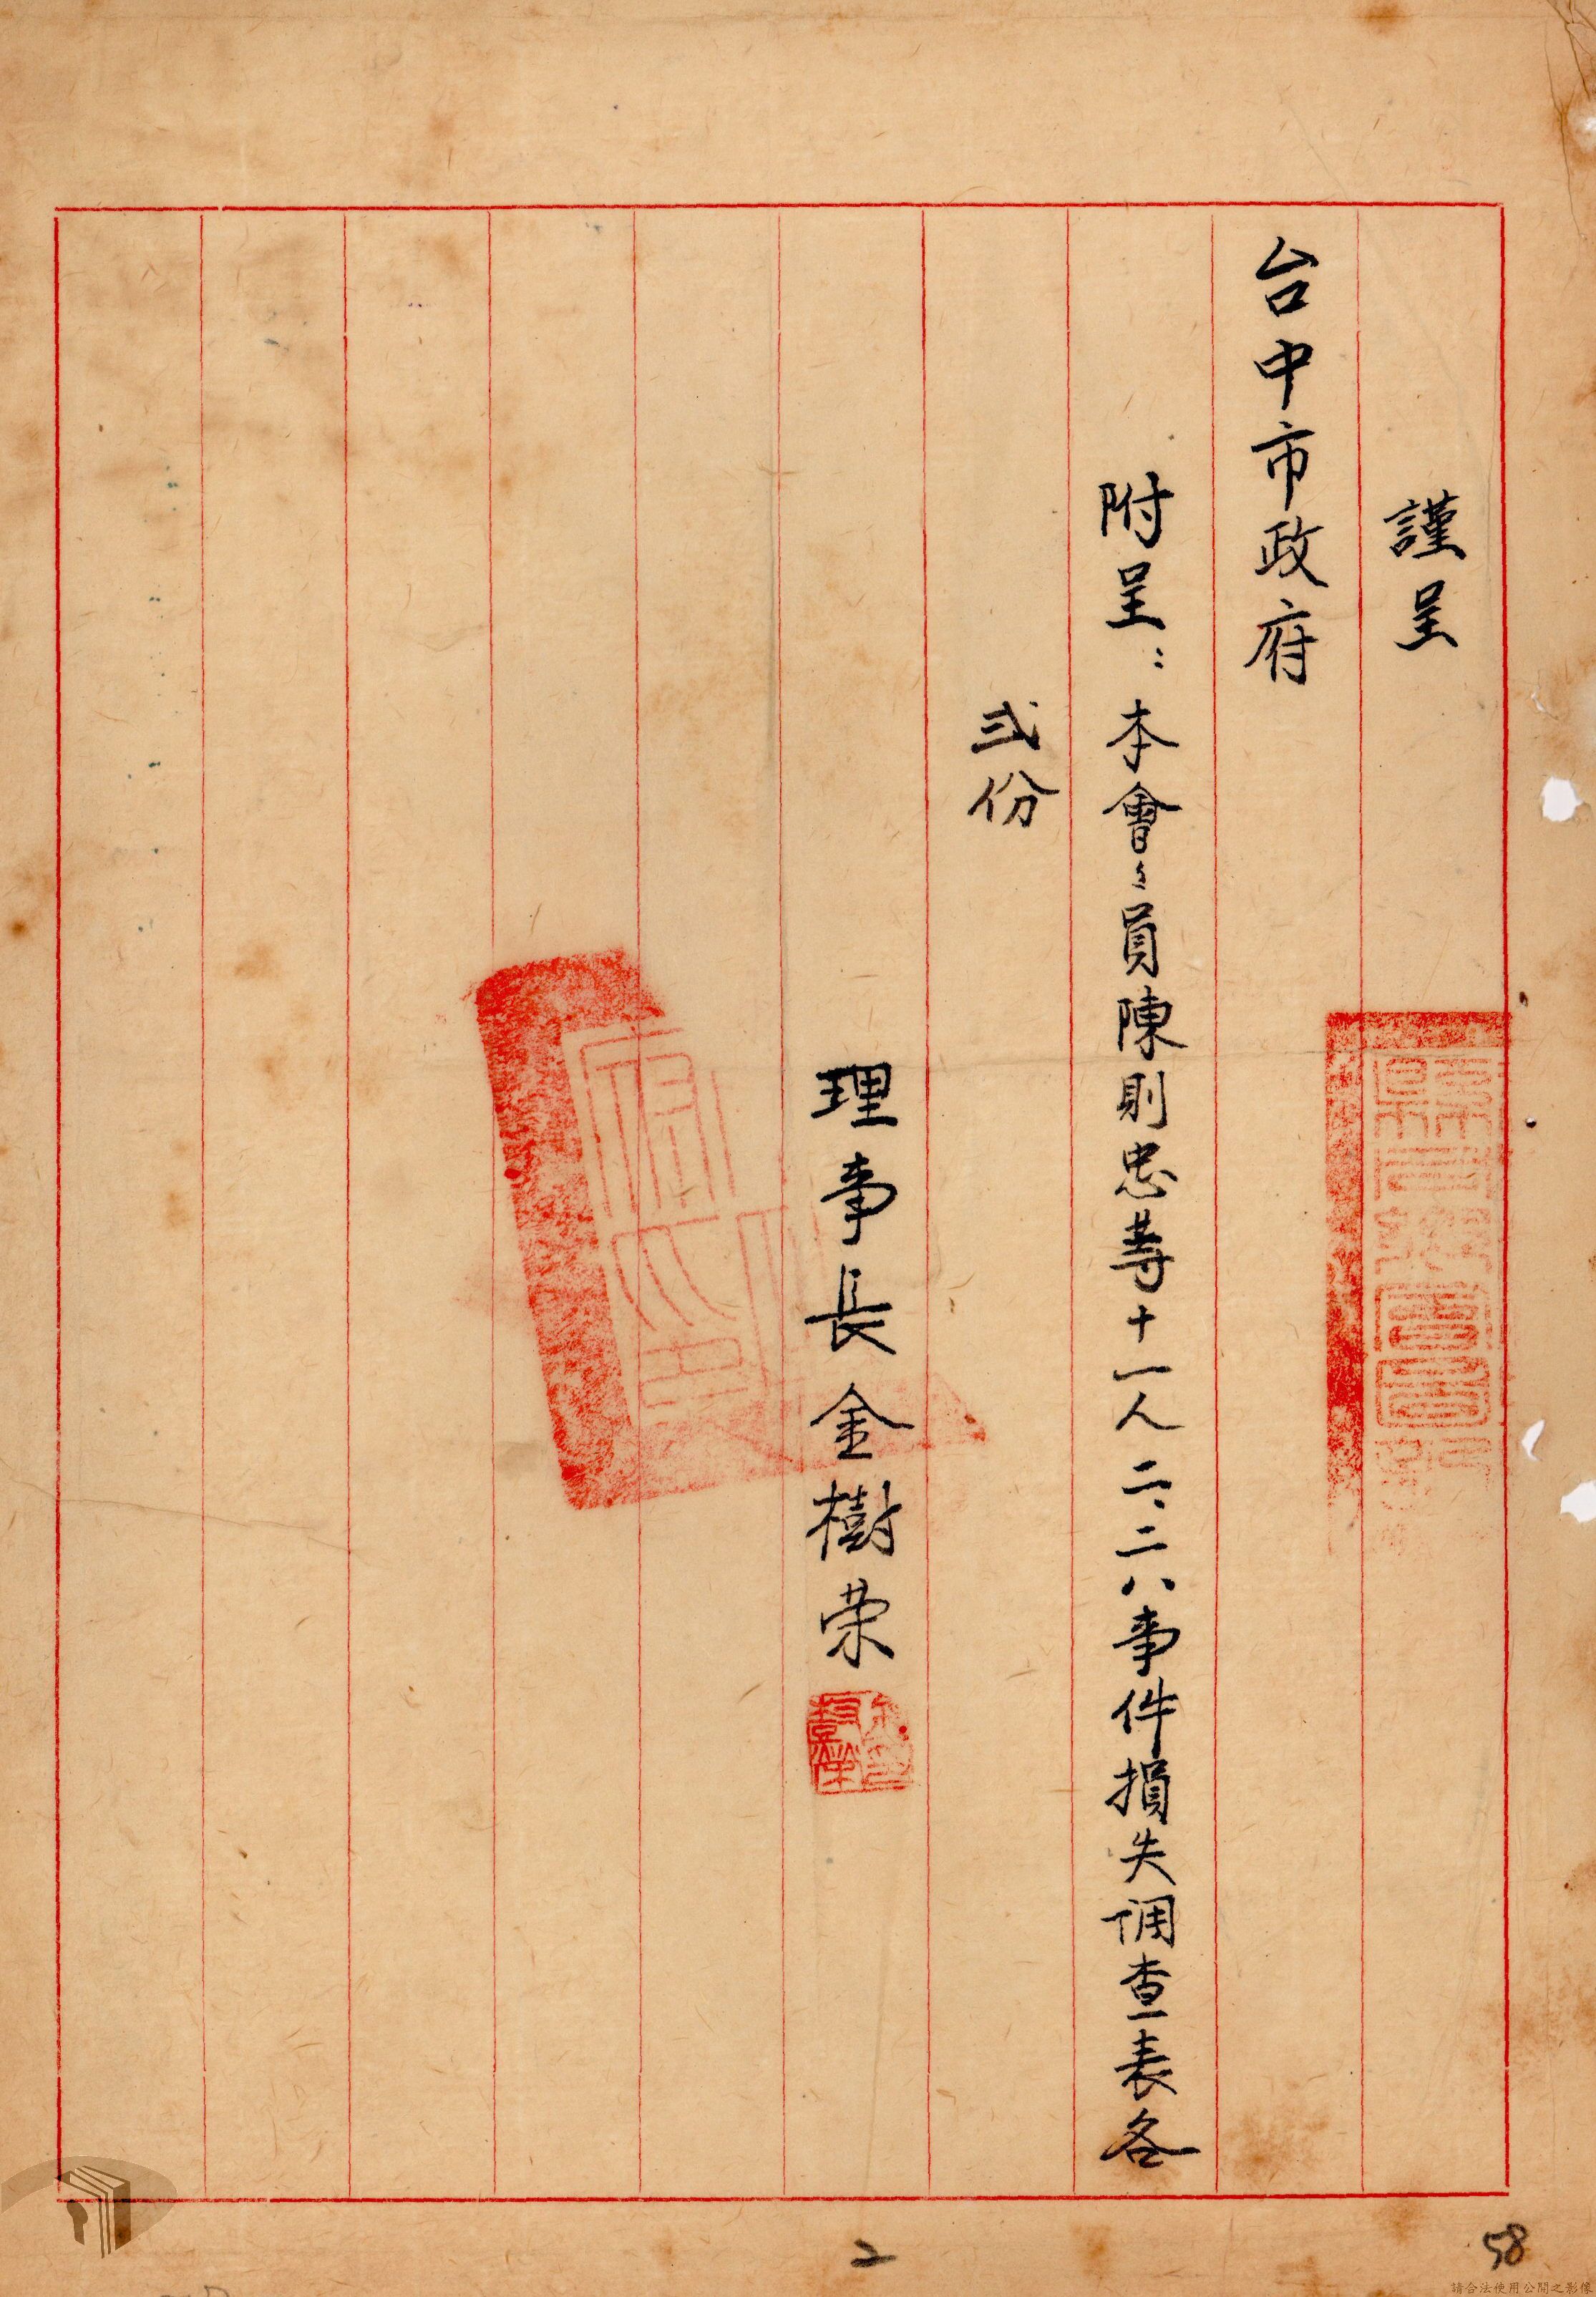 謹呈
台中市政府
附呈：本會々員陳則忠等十一人二、二八事件損失調查表各
弍份
理事長金樹荣
2
58
請合法使用公開之影像